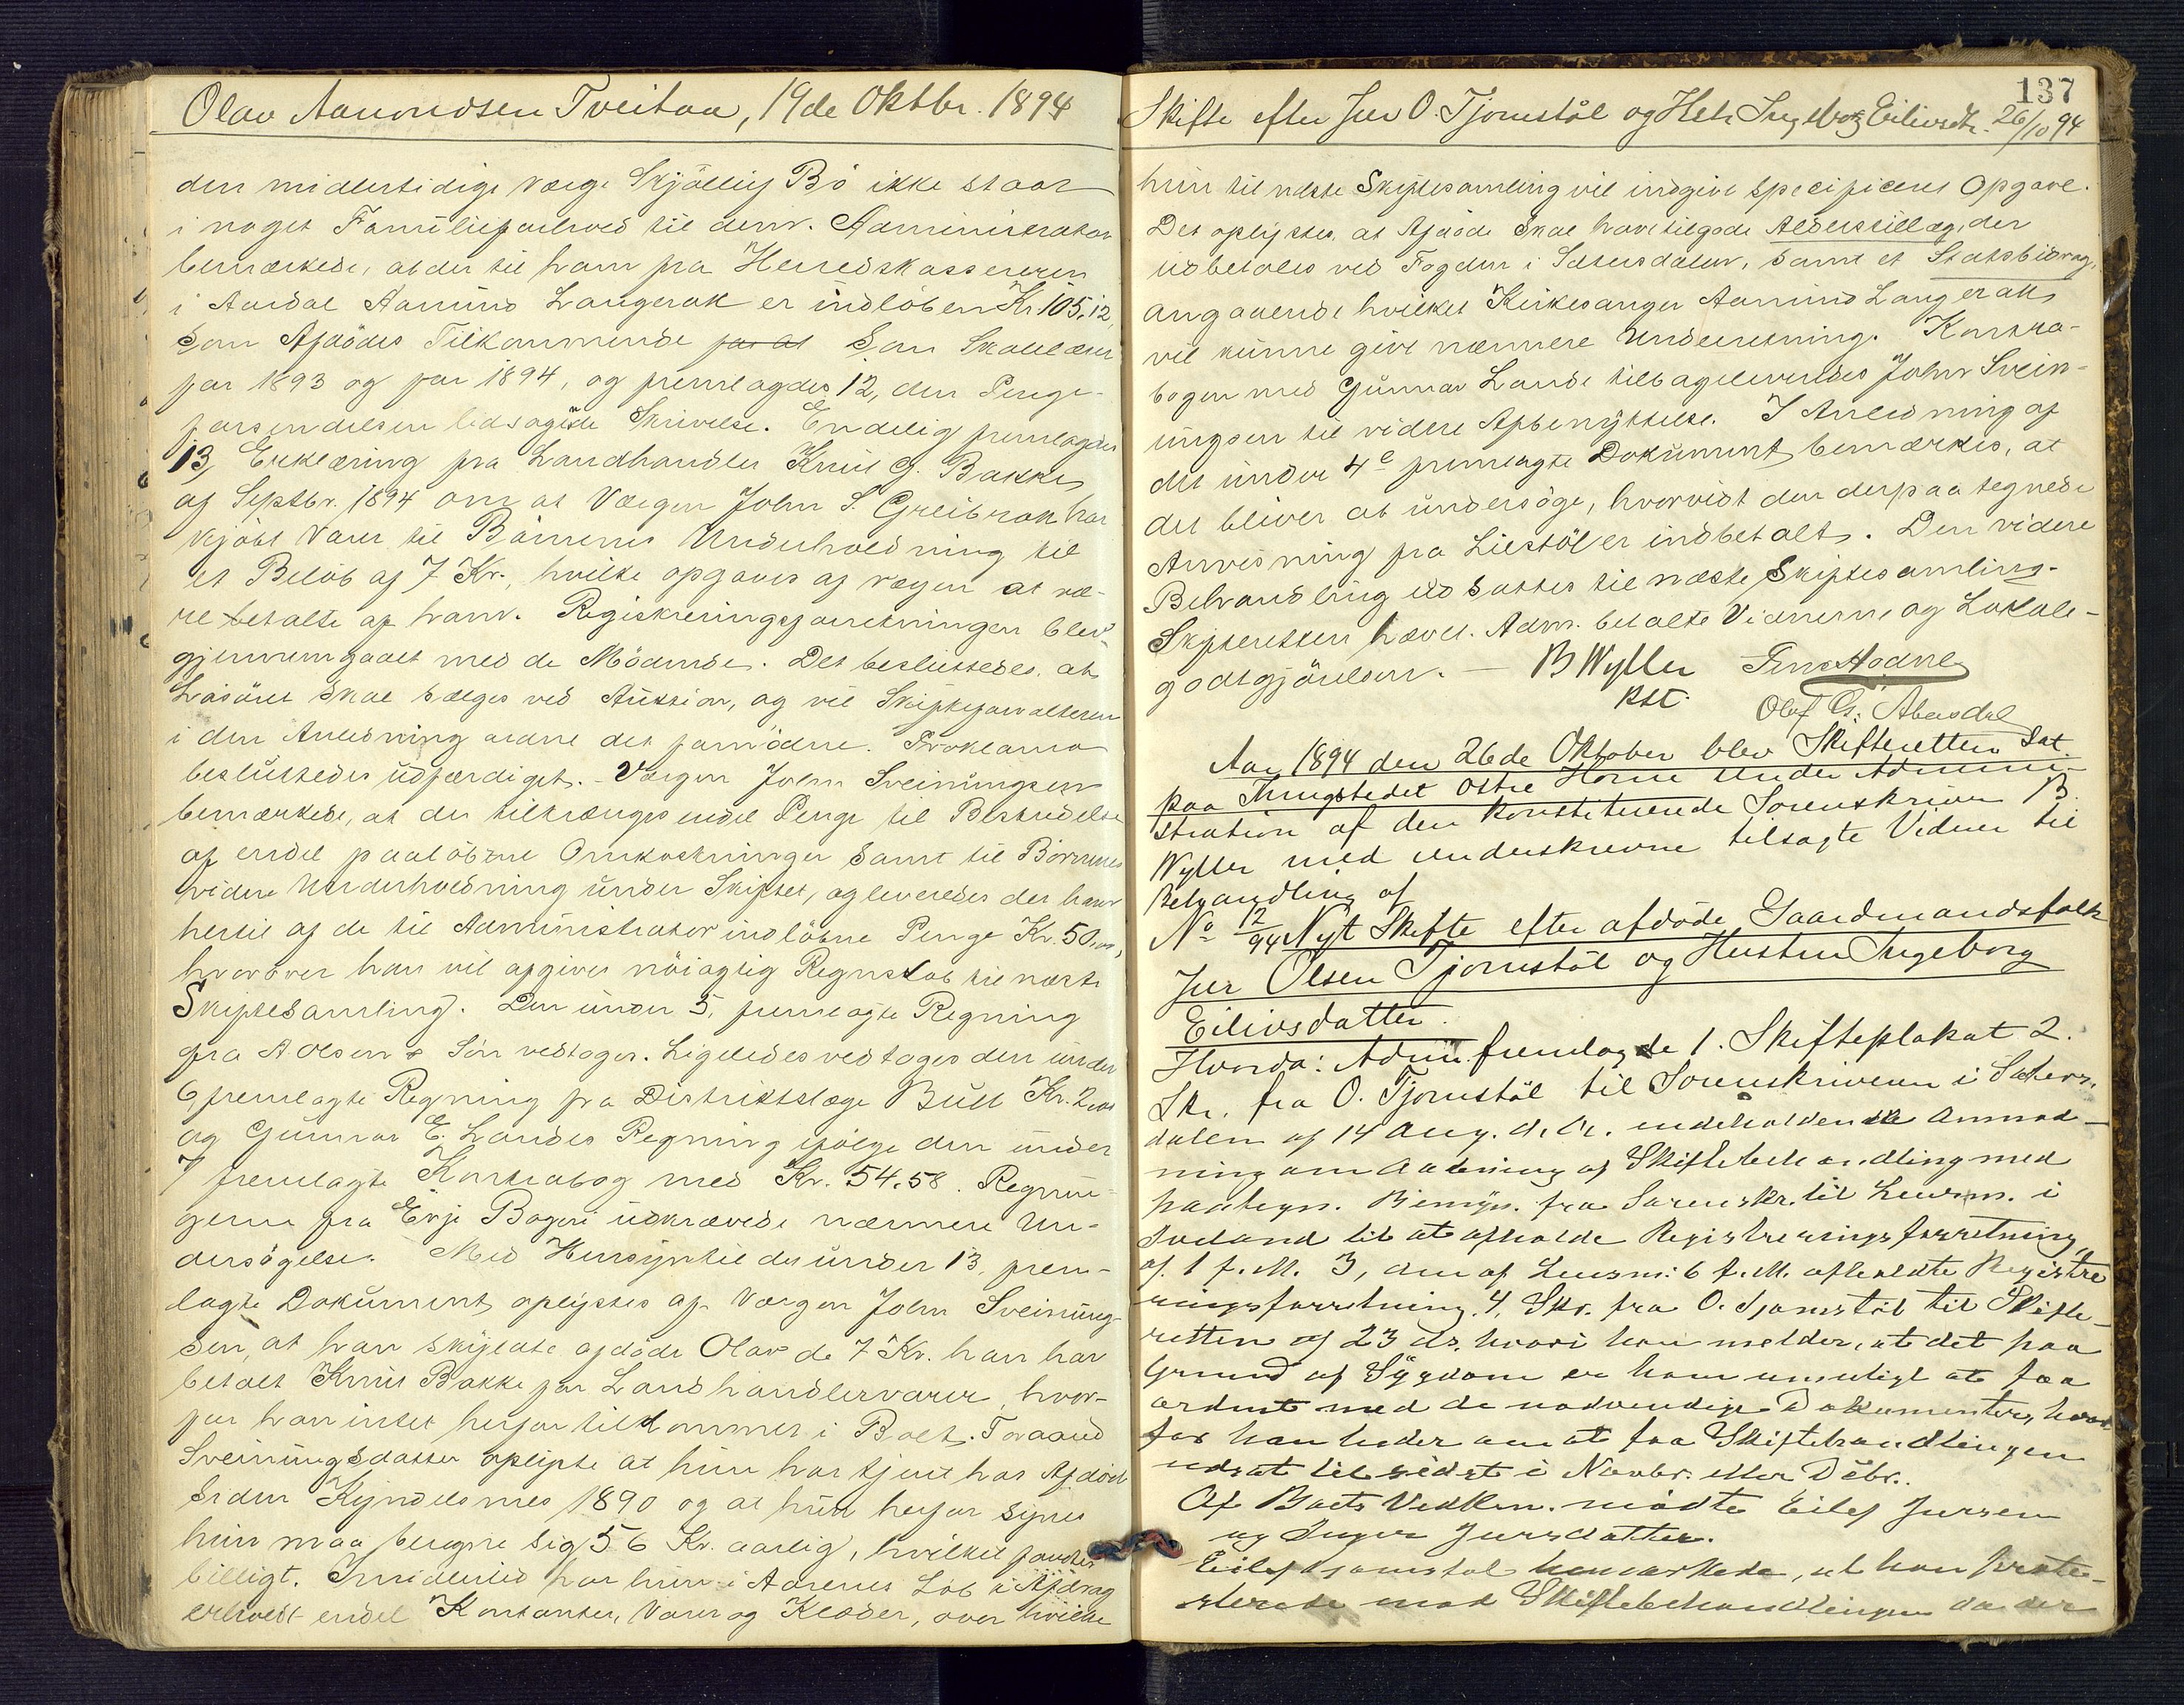 Olav Aamundsen Tveitaa, 19de Oktbr. 1894
den midlertidige Værge Skjøllug Bö ikke staar
i noget Familieforhold til dem. Administrator
bemærkede, at der til ham fra Herredskassereren
i Aardal Aamund Langerak er indlöben Kr. 105,12,
som Afdödes Tilkommende for at som Skolelærer
for 1893 og for 1894, og fremlagdes 12, den Penge-
forsendelsen ledsagede Skrivelse. Endelig fremlagdes
13, Erklæring fra Landhandler Knut G. Bakke
af Septbr. 1894 om at Værgen John S. Greibrok har
kjöbt Varer til Börnenes Underholdning til
et Belöb af 7 Kr., hvilke opgaves af Værgen at væ-
re betalte af ham. Registreringsforretningen blev
gjennemgaaet med de Mödende. Det besluttedes, at
Lösöret skal sælges ved Auktion, og vil Skifteforvalteren
i den Anledning ordne det fornödne. Proklama
besluttedes udfærdiget. - Værgen John Sveinungsen
bemærkede, at der tiltrænges endel Penge til Bestridelse
af endel paalöbne Omkostninger samt til Börnenes
videre Underholdning under Skiftet, og leveredes der ham
hertil af de til Administrator indlöbne Penge Kr. 50,00,
hvorover han vil afgive nöiagtig Regnskab til næste
Skiftesamling. Den under 5, fremlagte Regning
fra A Olsen & Sön vedtoges. Ligeledes vedtoges den under
6, fremlagte Regning fra Distriktslæge Bull Kr. 2,00
og Gunnar E. Landes Regning ifölge den under
7 fremlagte Kontrabog med Kr. 54,58. Regnin-
gerne fra Evje Bageri udkrævede nærmere Un-
dersögelse. Med Hensyn til det under 13, frem-
lagte Dokument oplystes af Værgen John Sveinung-
sen, at han skyldte afdöde Olav de 7 Kr. han har
betalt Knut Bakke for Landhandlervarer, hvor-
for han intet herfor tilkommer i Boet. Toraand
Sveinungsdatter oplyste at hun har tjent hos Afdöde
siden Kyndelsmes 1890 og at hun herfor synes
hun maa beregne sig 56 Kr. aarlig, hvilket fandtes
billigt. Imidlertid har hun i Aarenes Löb i Afdrag
erholdt endel Kontanter, Varer og Klæder, over hvilke
137
Skifte efter Jur O. Tjomstöl og Hstr. Ingeborg Eilivsdtr. 26/10 94
hun til næste Skiftesamling vil indgive specificeret Opgave.
Det oplystes, at Afdöde skal have tilgode Alderstillæg, der
udbetales ved Fogden i Sætersdalen, samt et Statsbidrag,
angaaende hvilket Kirkesanger Aamund Langerak
vil kunne give nærmere Underretning. Kontra-
bogen med Gunnar Lande tilbageleveredes John Svein-
ungsen til videre Afbenyttelse. I Anledning af
det under 4de fremlagte Dokument bemærkes, at
det bliver at undersöge, hvorvidt den derpaa tegnede
Anvisning fra Liestöl er indbetalt. Den videre
Behandling udsattes til næste Skiftesamling.
Skifteretten hævet. Adm. betalte Vidnerne og Lokale-
godtgjörelsen. - B Wyller
kst.
Olaf G. Abusdal
Aar 1894 den 26de Oktober blev Skifteretten sat
paa Thingstedet Östre Horne under Admini-
stration af den konstituerede Sorenskriver B.
Wyller med underskrevne tilsagte Vidner til
Behandling af
No 12/94 Nyt Skifte efter afdöde Gaardmandsfolk
Jur Olsen Tjomstöl og Hustru Ingeborg
Eilivsdatter.
Hvorda: Adm. fremlagde 1. Skifteplakat 2.
Skr. fra O. Tjomstöl til Sorenskriveren i Sæters-
dalen af 14 Aug. d. A. indeholdende Anmod-
ning om Aabning af Skiftebehandling med
paategn. Bemyn. fra Sorenskr. til Lensm. i
Iveland til at afholde Registreringsforretning,
af 1 f. M. 3, den af Lensm. 6 f. M. afholdte Registre
ringsforretning. 4, Skr. fra O. Tjomstöl til Skifte-
retten af 23 ds. hvori han melder, at det paa
Grund af Sygdom er ham umuligt at faa
ordnet med de nødvendige Dokumenter, hvor
for han beder om at faa Skiftebehandlingen
udsat til sidst i Novbr. eller Debr..
Af Boets Vedkm. mødte Eilef Jursen
og Inger Jursdatter.
Eilef Tjomstøl bemærkede, at han prote-
sterede mod Skiftebehandlingen da der